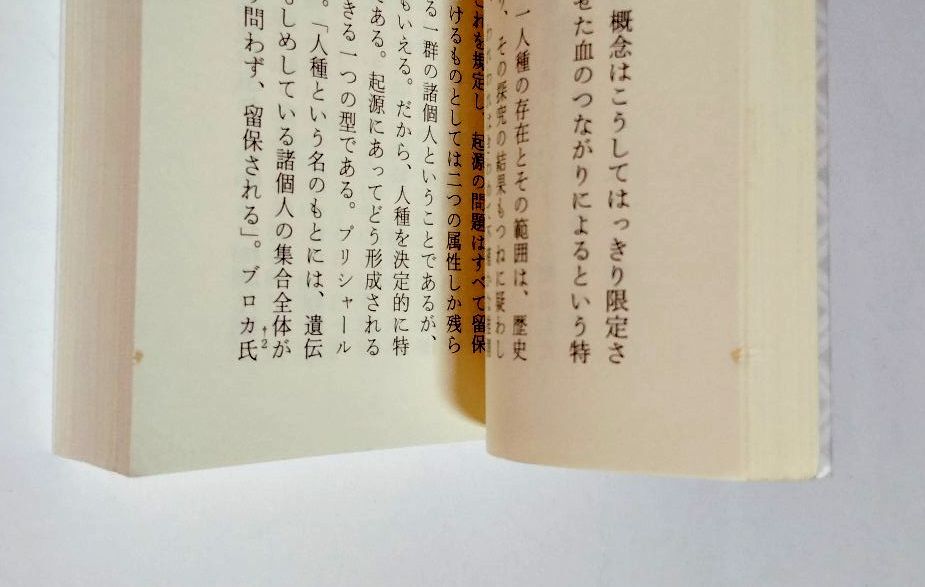 概念はこうしてはっきり限定さ
せた血のつながりによるという特
一人種の存在とその範囲は、歴史
り、その探究の結果もつねに疑わし
これを規定し、起源の問題はすべて留保
けるものとしては二つの属性しか残ら
る一群の諸個人ということであるが、
もいえる。だから、人種を決定的に特
である。起源にあってどう形成される
きる一つの型である。プリシャール
。「人種という名のもとには、遺伝
しめしている諸個人の集合全体が
問わず、留保される」。ブロカ氏
†2